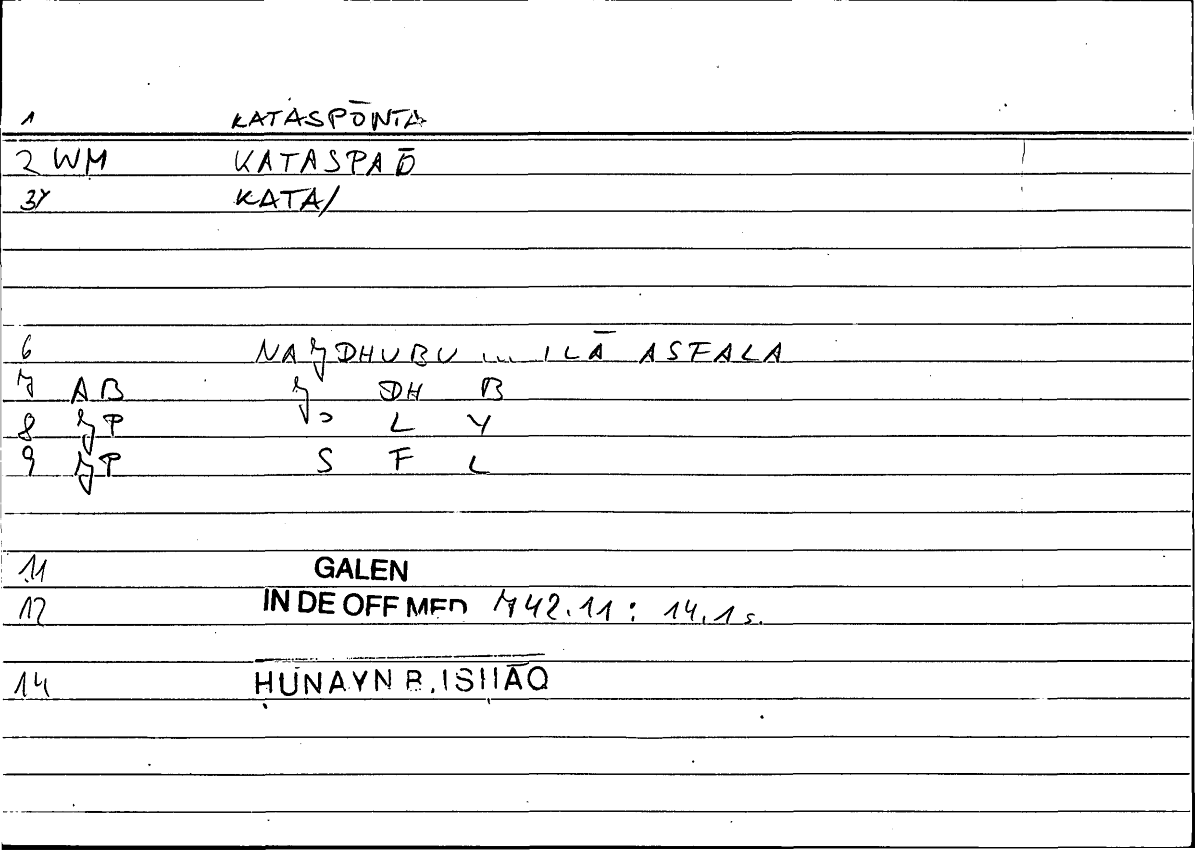 1 KATASPŌNTA
2 WM KATASPAŌ
3Y KATA/
6 NAJDHUBU ... ILĀ ASFALA
7 AB J DH B
8 JP ʾ L Y
9 JP S F L
11 GALEN
12 IN DE OFF MED 742.11 : 14.1 s.
14 ḤUNAYN B. ISḤĀQ